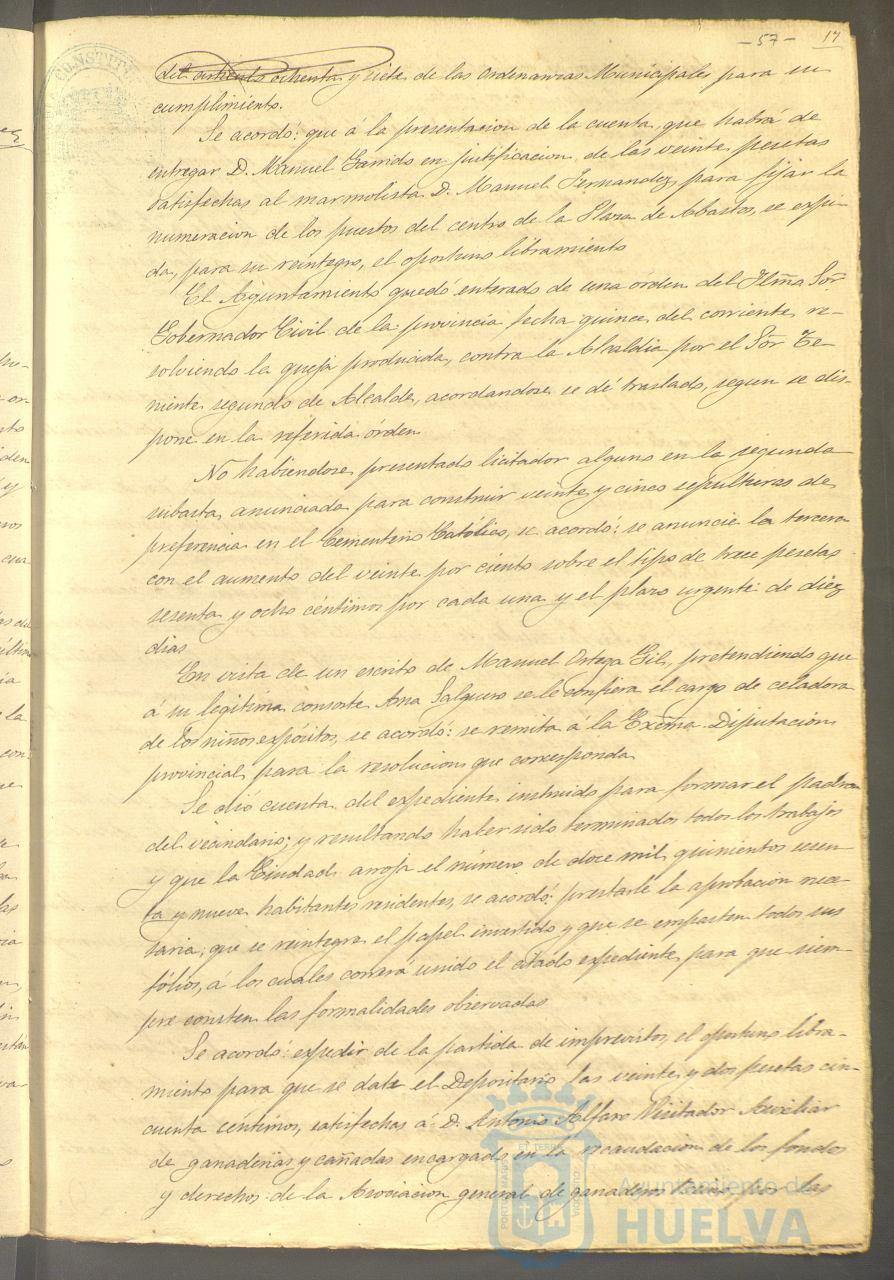 - 57 - 17
del artículo ochenta y siete de las Ordenanzas Municipales para su
cumplimiento.
Se acordó: que á la presentacion de la cuenta, que habrá de
entregar D. Manuel Garrido en justificacion de las veinte pesetas
satisfechas al marmolista D. Manuel Fernandez, para fijar la
numeracion de los puestos del centro de la Plaza de Abastos, se expi-
da, para su reintegro, el oportuno libramiento
El Ayuntamiento quedó enterado de una órden del Iltño Sor
Gobernador Civil de la provincia fecha quince del corriente, re-
solviendo la queja producida, contra la Alcaldía por el Sor Te-
niente segundo de Alcalde, acordandose se dé traslado, segun se dis-
pone en la referida órden
No habiendose presentado licitador alguno en la segunda
subasta, anunciada para construir veinte y cinco sepulturas de
preferencia en el Cementerio Católico, se acordó: se anuncie la tercera
con el aumento del veinte por ciento sobre el tipo de trece pesetas
sesenta y ocho céntimos por cada una y el plazo urgente de diez
dias
En vista de un escrito de Manuel Ortega Gil, pretendiendo que
á su legítima consorte Ana Salguero se le confiera el cargo de celadora
de los niños expósitos, se acordó: se remita á la Excma Diputacion
provincial para la resolucion que corresponda
Se dió cuenta del expediente instruido para formar el padron
del vecindario; y resultando haber sido terminados todos los trabajos
y que la Ciudad arroja el número de doce mil quinientos sesen
ta y nueve habitantes residentes, se acordó: prestarle la aprobacion nece-
saria, que se reintegre el papel invertido y que se empasten todos sus
fólios, á los cuales correrá unido el citado expediente, para que siem-
pre consten las formalidades observadas
Se acordó: expedir de la partida de imprevistos, el oportuno libra-
miento para que se date el Depositario las veinte y dos pesetas cin-
cuenta céntimos, satisfechas á D. Antonio Alfaro Visitador Auxiliar
de ganaderías y cañadas encargado en la recaudacion de los fondos
y derechos de la Asociacion general de ganaderos por las
Ayuntamiento de
HUELVA